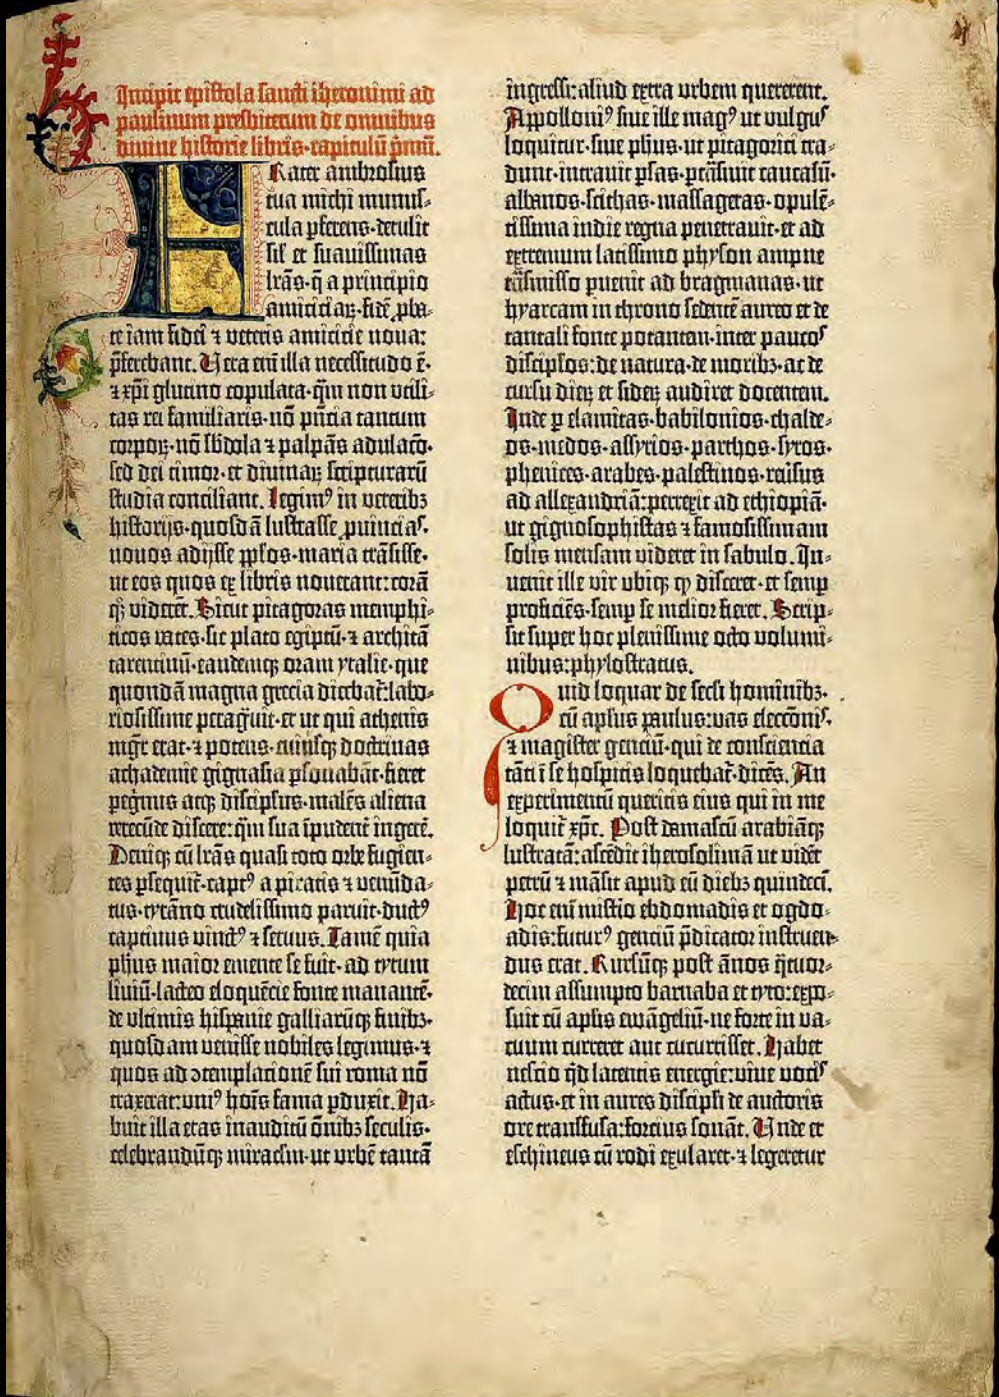 Incipit epistola sancti iheronimi ad
paulinum presbiterum de omnibus
divine historie libris·capitulū p̄mū.
Frater ambrosius
tua michi munus-
cula ꝑferens·detulit
sil̄ et suavissimas
lrās·q̄ a principio
amiciciaꝝ·fidē ꝓba-
te iam fidei ⁊ veteris amicicie nova:
p̄ferebant. Vera eni̅ illa necessitudo ē·
⁊ xp̄i glutino copulata·q̄m non utili-
tas rei familiaris·nō p̄ncia tantum
corpoꝝ·nō sb̄dola ⁊ palpās adulac̄o·
sed dei timor·et divinaꝝ scripturarū
studia conciliant. Legimꝰ in veteribꝫ
historijs·quosdā lustrasse ꝓvincias·
novos adijsse ꝓp̄los·maria trāsisse·
ut eos quos ex libris noverant: corā
qꝫ viderēt. Sicut pitagoras memphi-
ticos vates·sic plato egiptū·⁊ architā
tarentinū·eandemqꝫ oram ytalie·que
quondā magna grecia dicebat̄: labo-
riosissime peragravit·et ut qui athenis
mgr̄ erat·⁊ potens·cuiusqꝫ doctrinas
achademie gignasia ꝑsonabāt·fieret
pegrinus atqꝫ discipulus·malēs aliena
verecūde discere: q̄m sua īpudent̄ ingerē̄.
Deniqꝫ cū lrās quasi toto orbe fugien-
tes ꝑsequit̄·captꝰ a piratis ⁊ venūda-
tus·tyrāno crudelissimo paruit·ductꝰ
captivus vinctꝰ ⁊ servus. Tamē quia
ph̄us maior emente se fuit·ad tytum
livium·lacteo eloquēcie fonte manantē·
de ultimis hispanie galliarūqꝫ finibꝫ·
quosdam venisse nobiles legimus·⁊
quos ad ꝯtemplacionē sui roma nō
traxerat: uniꝰ hoīs fama ꝑduxit. Ha-
buit illa etas inauditū ōnibꝫ seculis·
celebrandūqꝫ miracl̄m·ut urbē tantā
ingressi: aliud extra urbem quererent.
Appolloniꝰ sive ille magꝰ ut vulgus
loquitur·sive ph̄us·ut pitagorici tra-
dunt·intravit ꝑsas·ꝑtrāsivit caucasū·
albanos·scithas·massagetas·opulē-
tissima indie regna penetravit·et ad
extremum latissimo physon ampne
trāsmisso ꝑvenit ad bragmanas·ut
hyarcam in throno sedentē aureo et de
tantali fonte potantem·inter paucos
discipl̄os: de natura·de moribꝫ·ac de
cursu dieꝝ et sideꝝ audiret docentem.
Inde ꝑ elamitas·babilonios·chalde-
os·medos·assyrios·parthos·syros·
phenices·arabes·palestinos·reversus
ad allexandriā: perrexit ad ethiopiā·
ut gignosophistas ⁊ famosissimam
solis mensam videret in sabulo. In-
venit ille vir ubiqꝫ qď disceret·et semꝑ
proficiēs·semꝑ se melior fieret. Scrip-
sit super hoc plenissime octo volumi-
nibus: phylostratus.
Quid loquar de seculi hominibꝫ·
cū apl̄us paulus: vas elecc̄onis·
⁊ magister genciū·qui de consciencia
tāti ī se hospitis loquebat̄·dicēs. An
experimentū queritis eius qui in me
loquit̄ xp̄c. Post damascū arabiāqꝫ
lustratā: ascēdit iherosolimā ut vidēt
petrū ⁊ māsit apud eū diebꝫ quindeci̅.
Hoc eni̅ misterio ebdomadis et ogdo-
adis: futurꝰ genciū p̄dicator instruen-
dus erat. Rursūqꝫ post ānos q̄tuor-
decim assumpto barnaba et tyto: expo-
suit cū apl̄is ewāgeliū·ne forte in va-
cuum curreret aut cucurrisset. Habet
nescio qd̄ latentis energie: vive vocis
actus·et in aures discipl̄i de auctoris
ore transfusa: forcius sonāt. Unde et
eschineus cū rodi exularet·⁊ legeretur